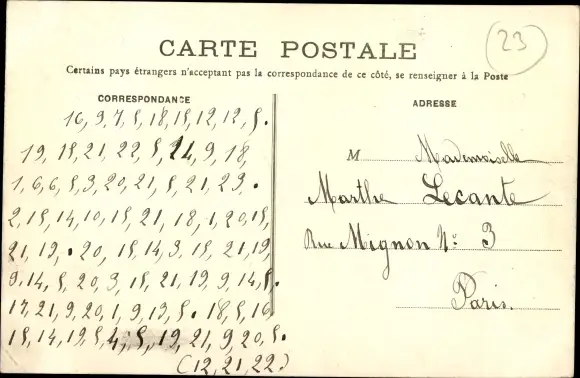 23
CARTE POSTALE
Certains pays étrangers n'acceptant pas la correspondance de ce côté, se renseigner à la Poste
CORRESPONDANCE
16, 9, 7, 5, 18, 15, 12, 12, 5.
19, 15, 21, 22, 5, 14, 9, 18,
1, 6, 6, 5, 3, 20, 21, 5, 21, 23.
2, 15, 14, 10, 15, 21, 18, 1, 20, 15,
21, 19. 20, 15, 14, 3, 15, 21, 19
9, 14, 5, 20, 3, 15, 21, 19, 9, 14, 5.
17, 21, 9, 20, 1, 9, 13, 5. 18, 5, 16
15, 14, 19, 5, 4, 5, 19, 21, 9, 20, 5.
(12, 21, 22.)
ADRESSE
M Mademoiselle
Marthe Lecante
Rue Mignon N° 3
Paris.